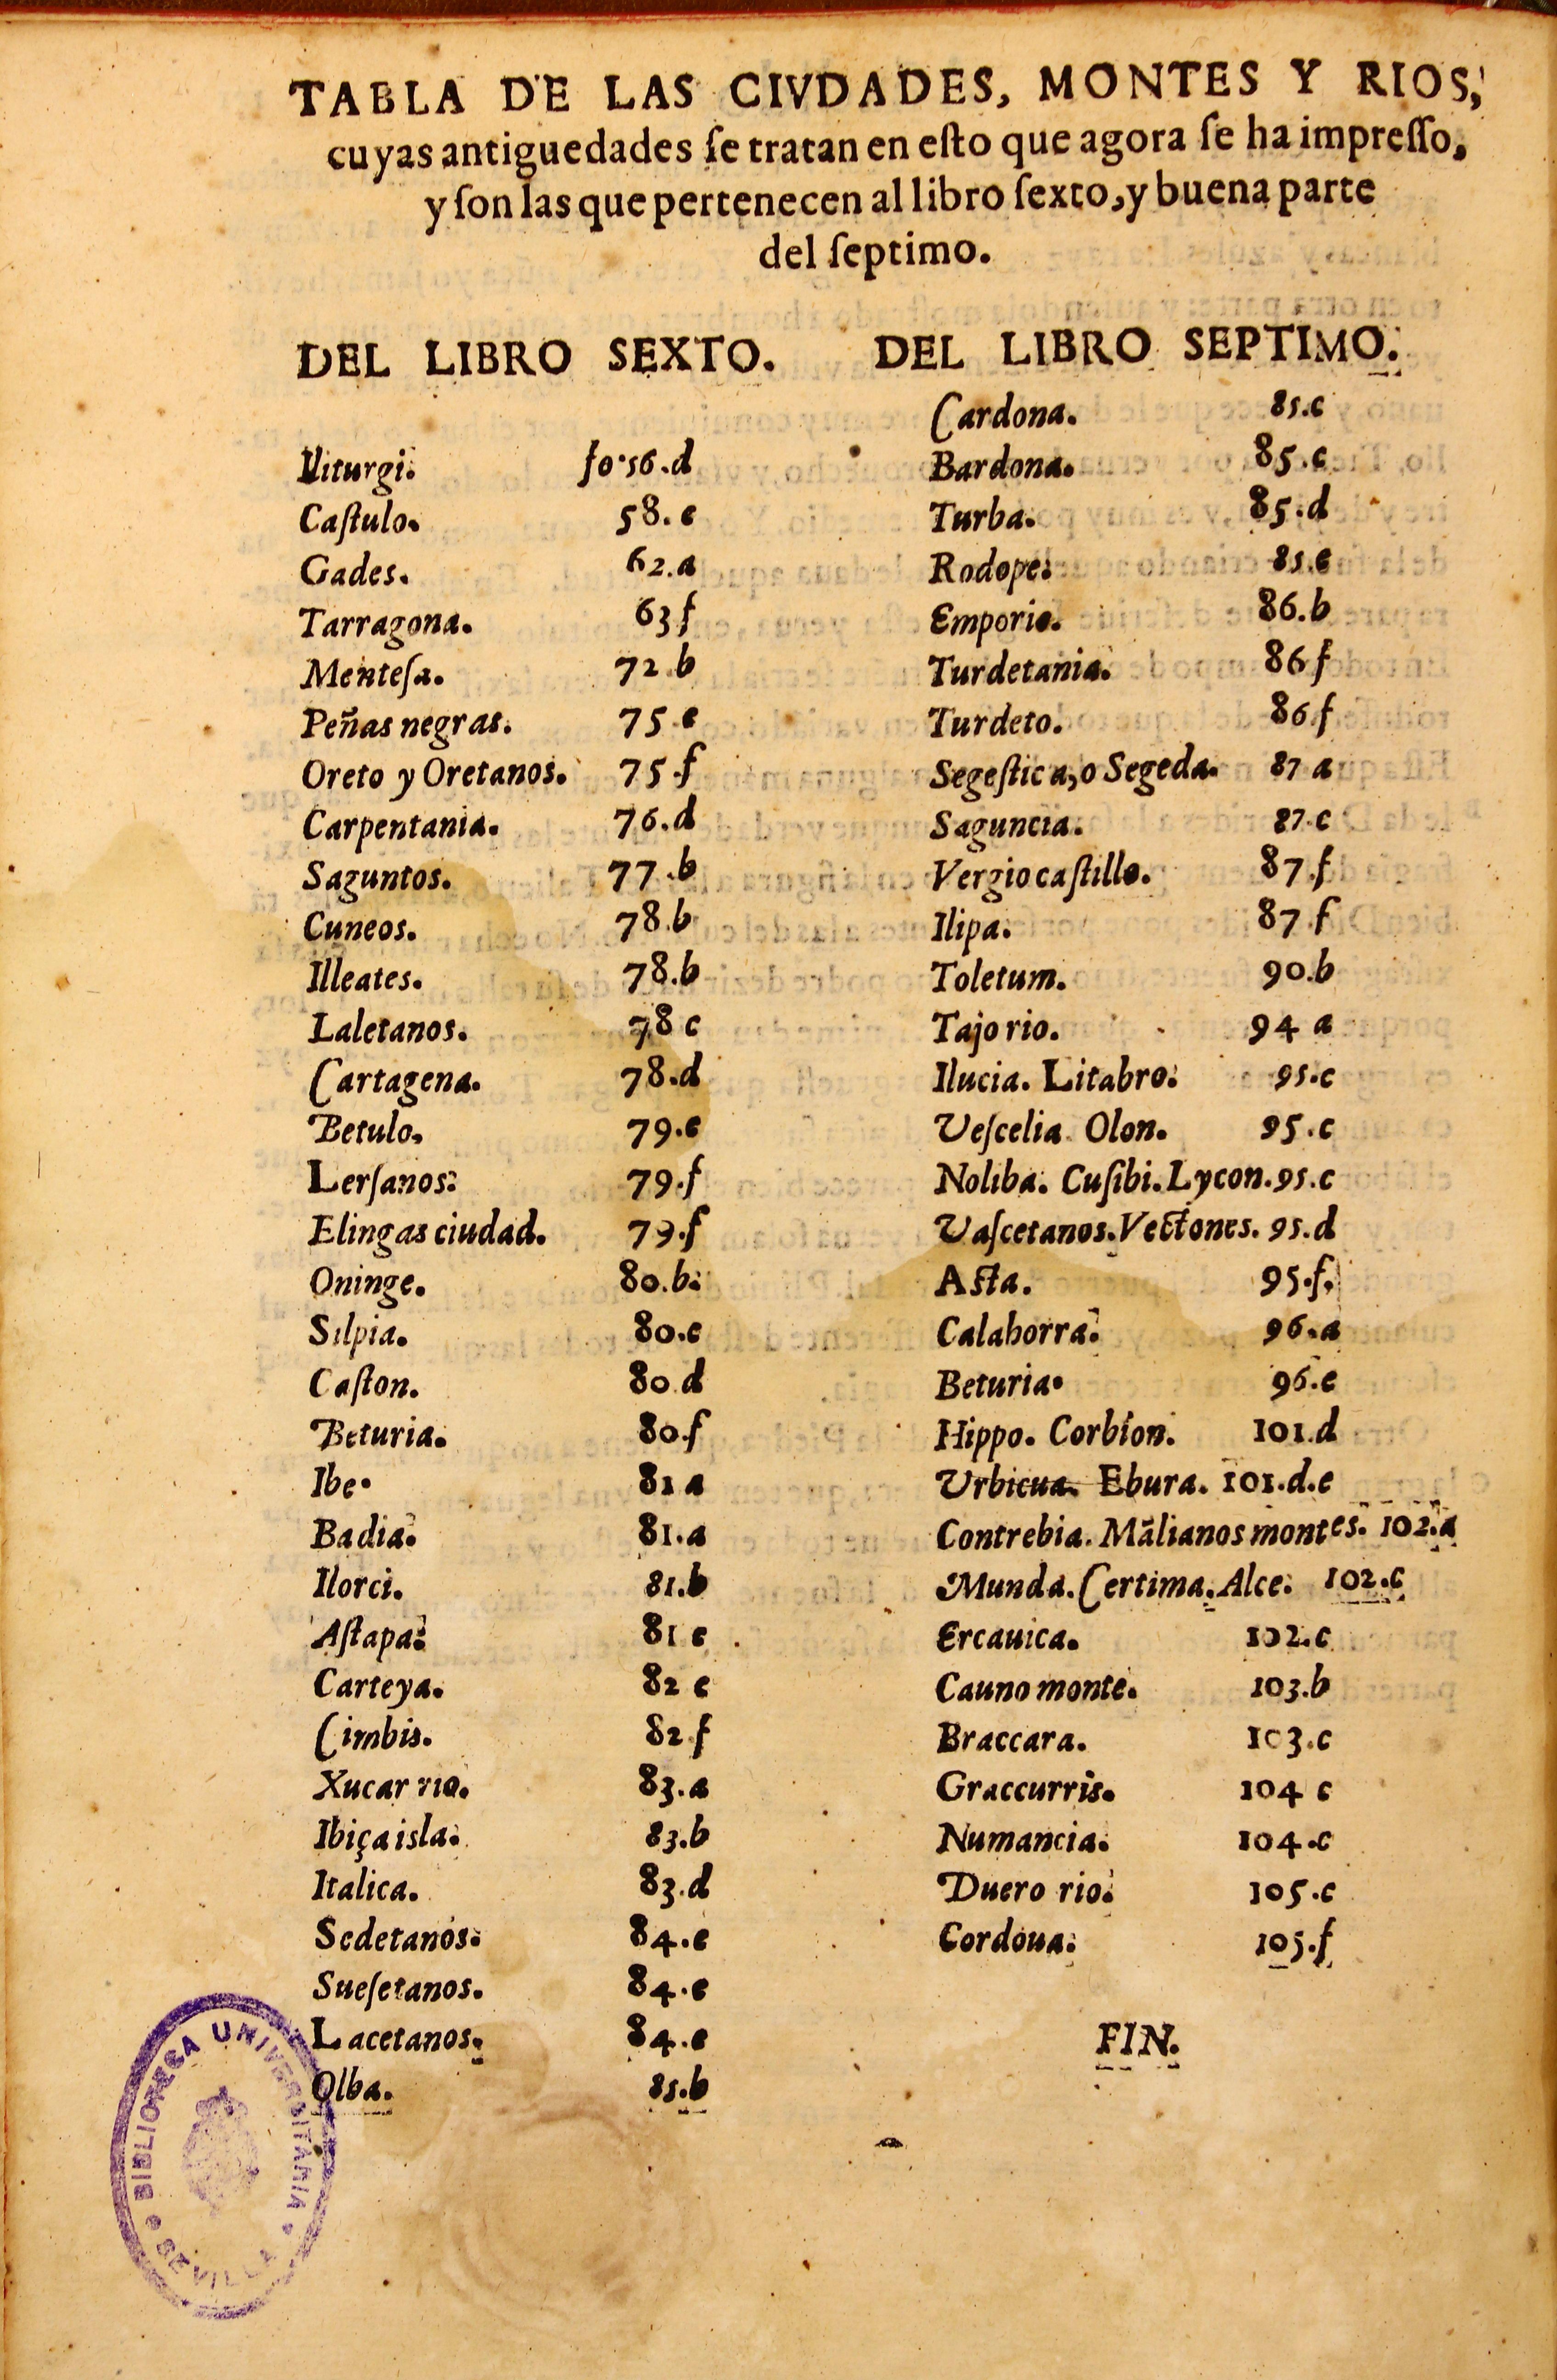 TABLA DE LAS CIVDADES, MONTES Y RIOS,
cuyas antiguedades ſe tratan en eſto que agora ſe ha impreſſo,
y ſon las que pertenecen al libro ſexto, y buena parte
del ſeptimo.
DEL LIBRO SEXTO.
Iliturgi. fo.56.d
Caſtulo. 58.e
Gades. 62.a
Tarragona. 63 f
Menteſa. 72.b
Peñas negras. 75.e
Oreto y Oretanos. 75.f
Carpentania. 76.d
Saguntos. 77.b
Cuneos. 78.b
Illeates. 78.b
Laletanos. 78 c
Cartagena. 78.d
Betulo. 79.e
Lerſanos. 79.f
Elingas ciudad. 79.f
Oninge. 80.b.
Silpia. 80.c
Caſton. 80.d
Beturia. 80.f
Ibe. 81 a
Badia. 81.a
Ilorci. 81.b
Aſtapa. 81 e
Carteya. 82 c
Cimbis. 82.f
Xucar rio. 83.a
Ibiça isla. 83.b
Italica. 83.d
Sedetanos. 84.e
Sueſetanos. 84.e
Lacetanos. 84.e
Olba. 85.b
DEL LIBRO SEPTIMO.
Cardona. 85.c
Bardona. 85.c
Turba. 85.d
Rodope. 85.e
Emporio. 86.b
Turdetania. 86 f
Turdeto. 86.f
Segeſtica, o Segeda. 87 a
Saguncia. 87.c
Vergio caſtillo. 87.f
Ilipa. 87.f
Toletum. 90.b
Tajo rio. 94 a
Ilucia. Litabro. 95.c
Veſcelia. Olon. 95.c
Noliba. Cuſibi. Lycon. 95.c
Vaſcetanos. Vectones. 95.d
Aſta. 95.f.
Calahorra. 96.a
Beturia. 96.e
Hippo. Corbion. 101.d
Urbicua. Ebura. 101.d.e
Contrebia. Mãlianos montes. 102.a
Munda. Certima. Alce. 102.c
Ercauica. 102.c
Cauno monte. 103.b
Braccara. 103.c
Graccurris. 104 c
Numancia. 104.c
Duero rio. 105.c
Cordoua. 105.f
FIN.
BIBLIOTECA UNIVERSITARIA
SEVILLA